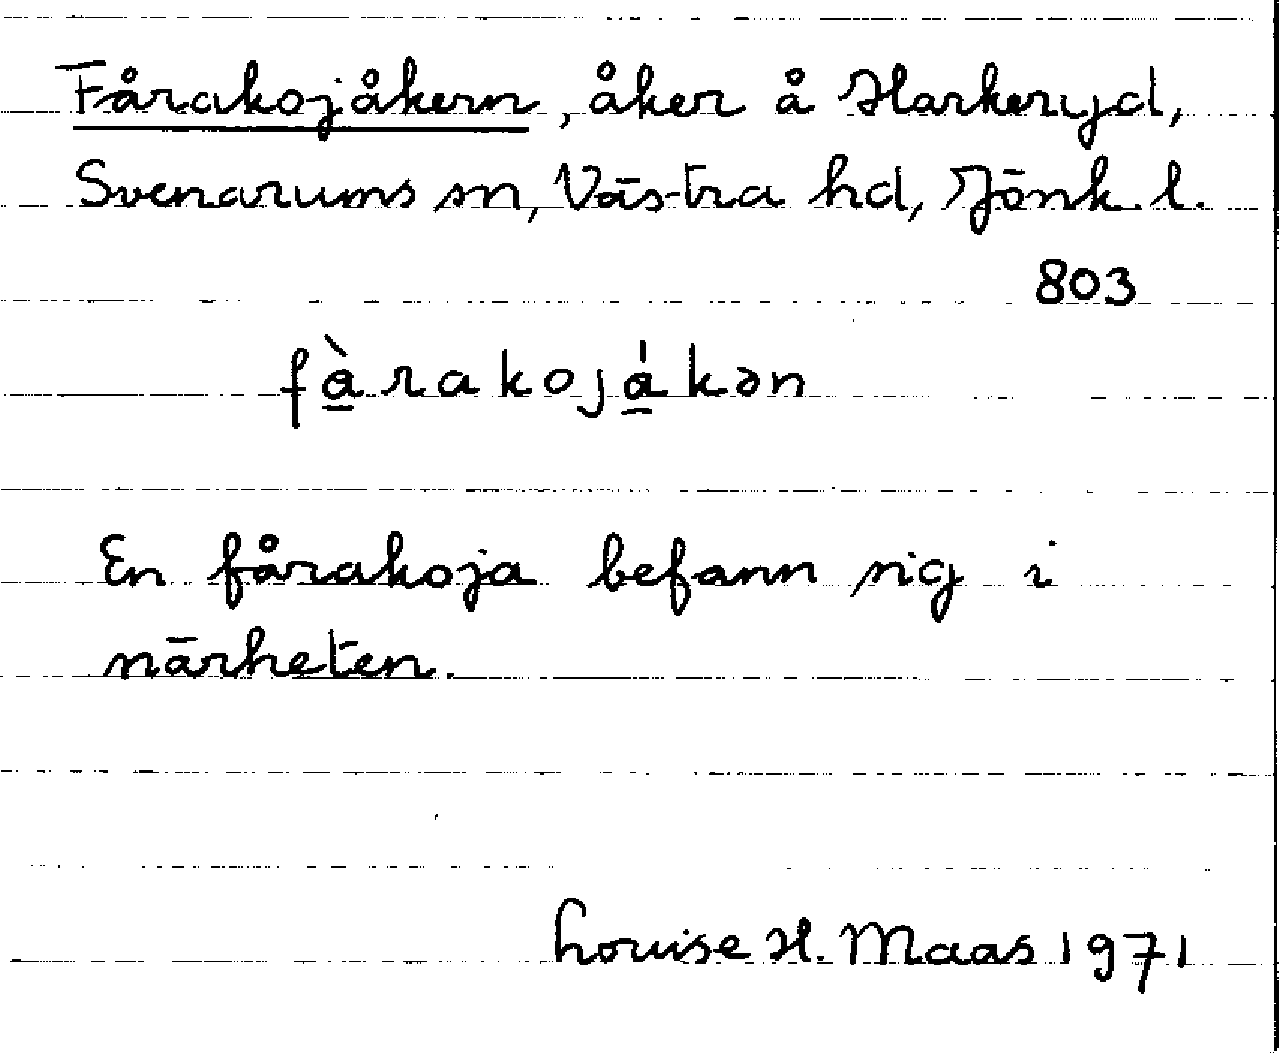 Fårakojåkern, åker å Harkeryd,
Svenarums sn, Västra hd, Jönk. l.
803
fà̱rakojá̱kən
En fårakoja befann sig i
närheten.
Louise H. Maas 1971